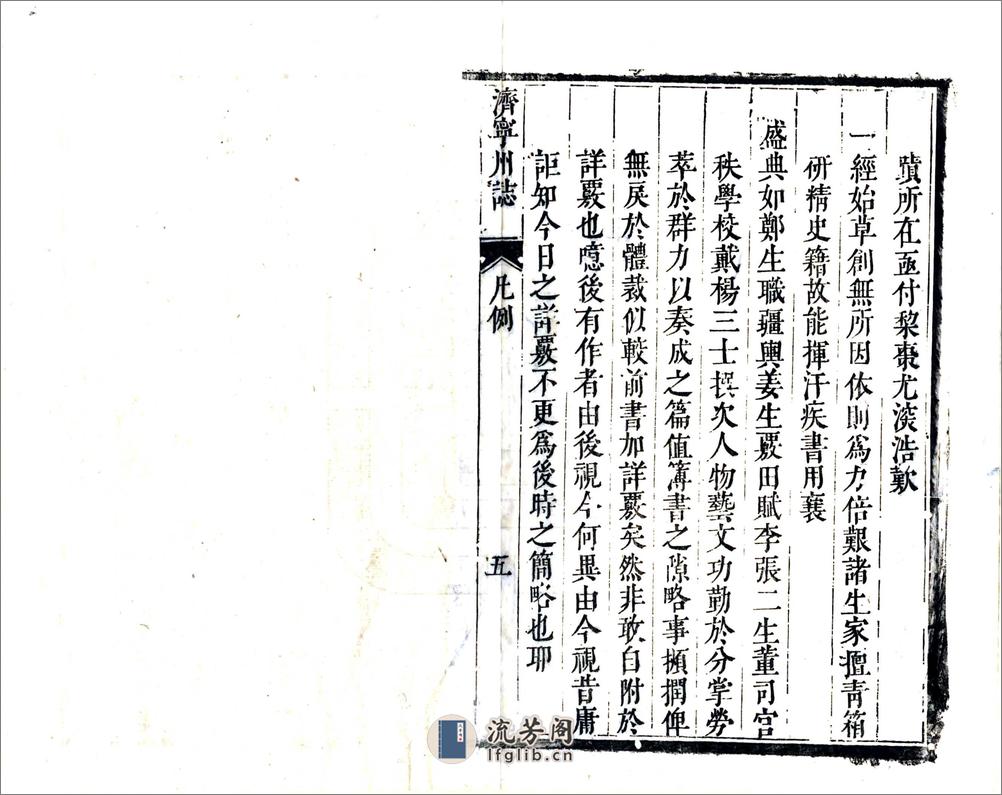 蹟所在亟付棃棗尤深浩歎
一經始草創無所因依則爲力倍艱諸生家擅靑箱
研精史籍故能揮汗疾書用襄
盛典如鄭生職疆輿姜生覈田賦李張二生董司官
秩學校戴楊三士撰次人物藝文功勤於分掌勞
萃於群力以奏成之篇值簿書之隙略事揁潤俾
無戾於體裁似較前書加詳覈矣然非敢自附於
詳覈也噫後有作者由後視今何異由今視昔庸
詎知今日之詳覈不更爲後時之簡略也耶
濟寧州誌
凡例
五
流芳阁
lfglib.cn